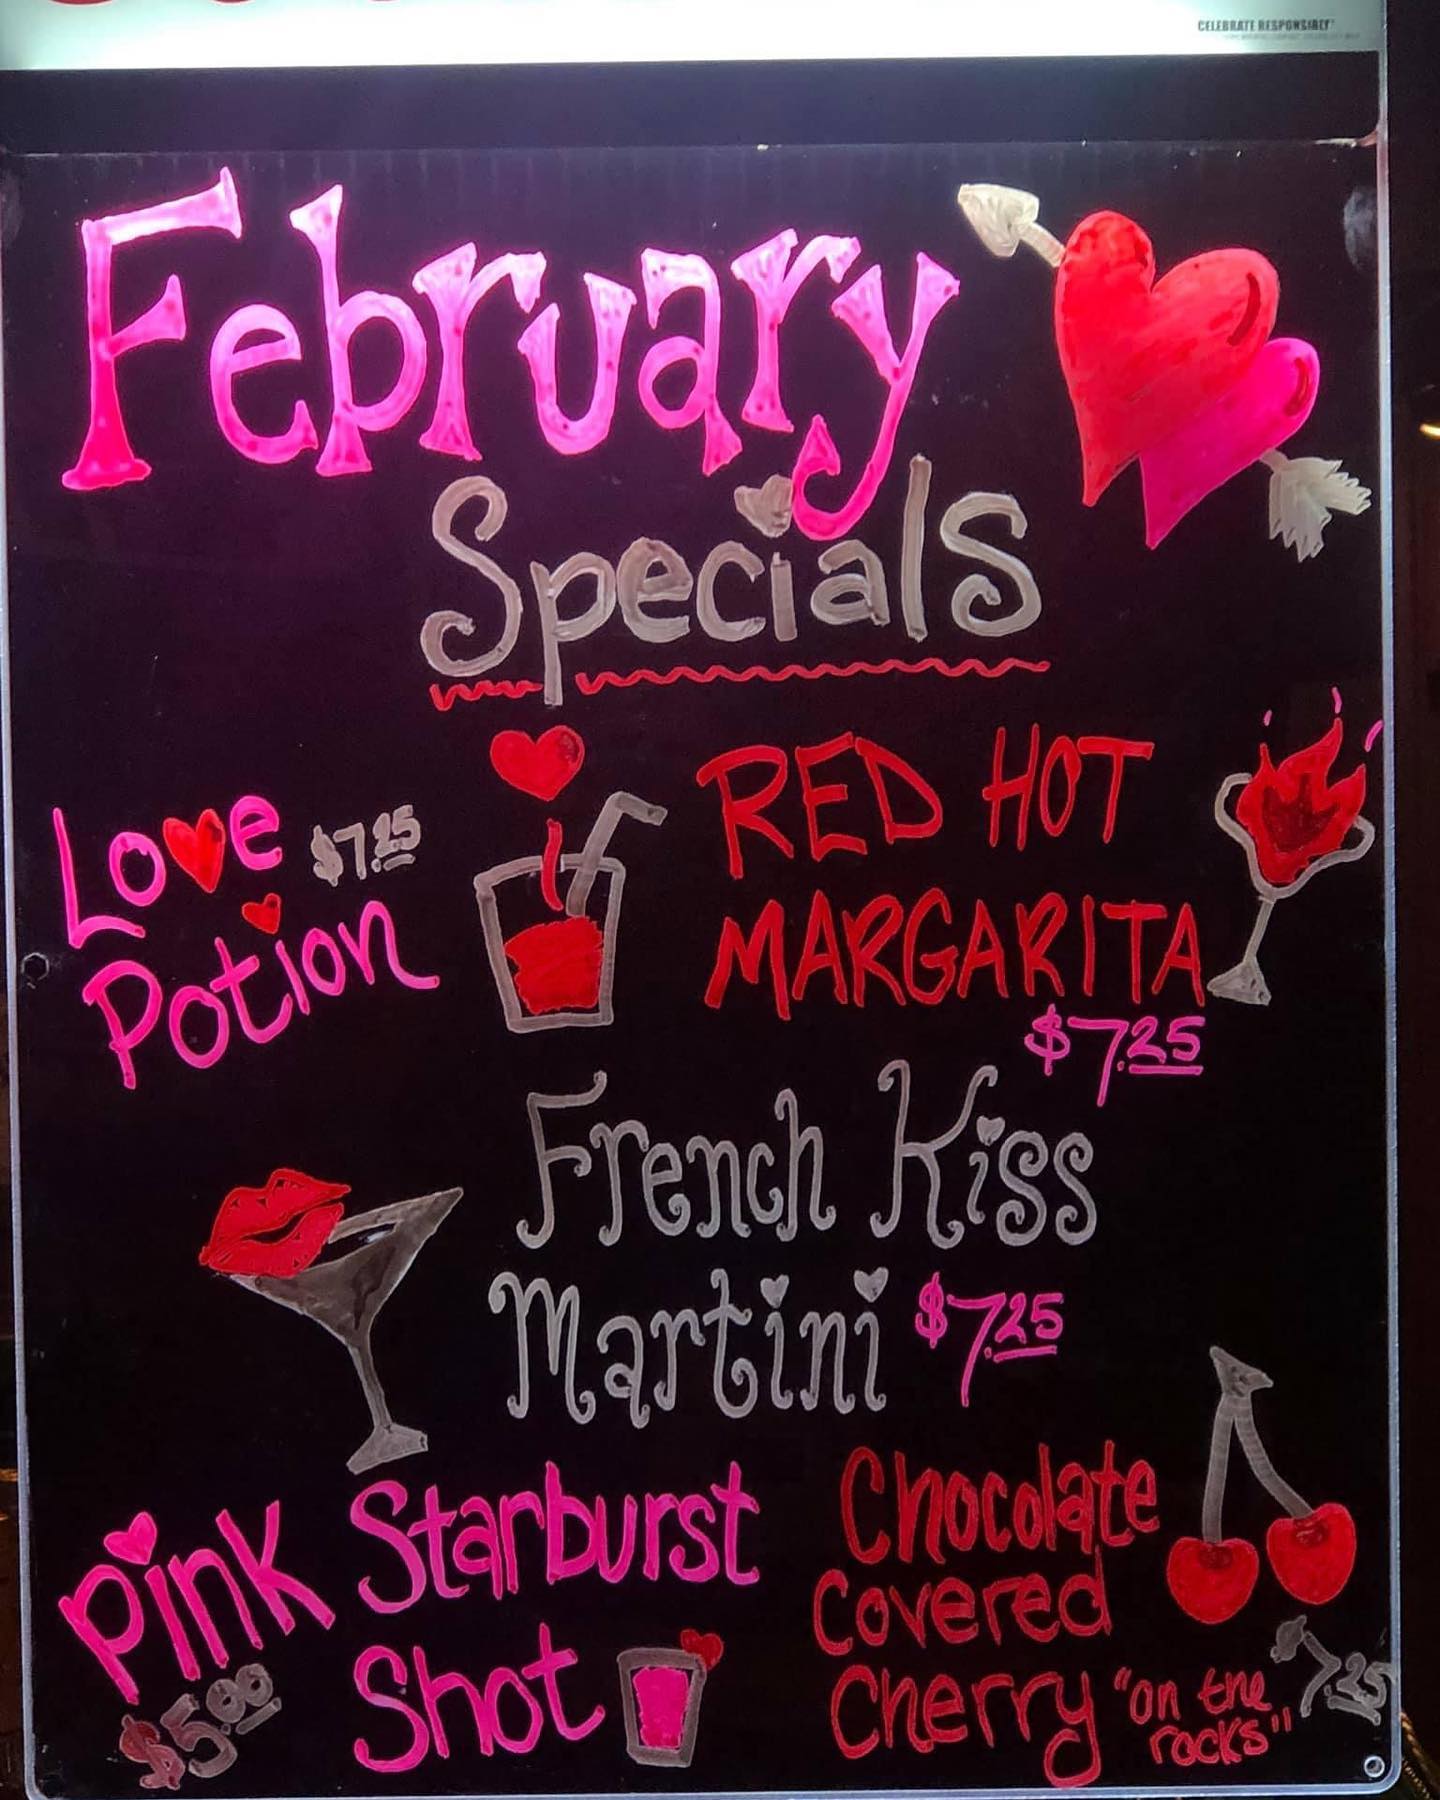 CELEBRATE RESPONSIBLY
February
Specials
Love $7.25
Potion
RED HOT
MARGARITA
$7.25
French Kiss
Martini $7.25
Pink Starburst
Shot
$5.00
Chocolate
Covered
Cherry "on the
rocks" 7.25